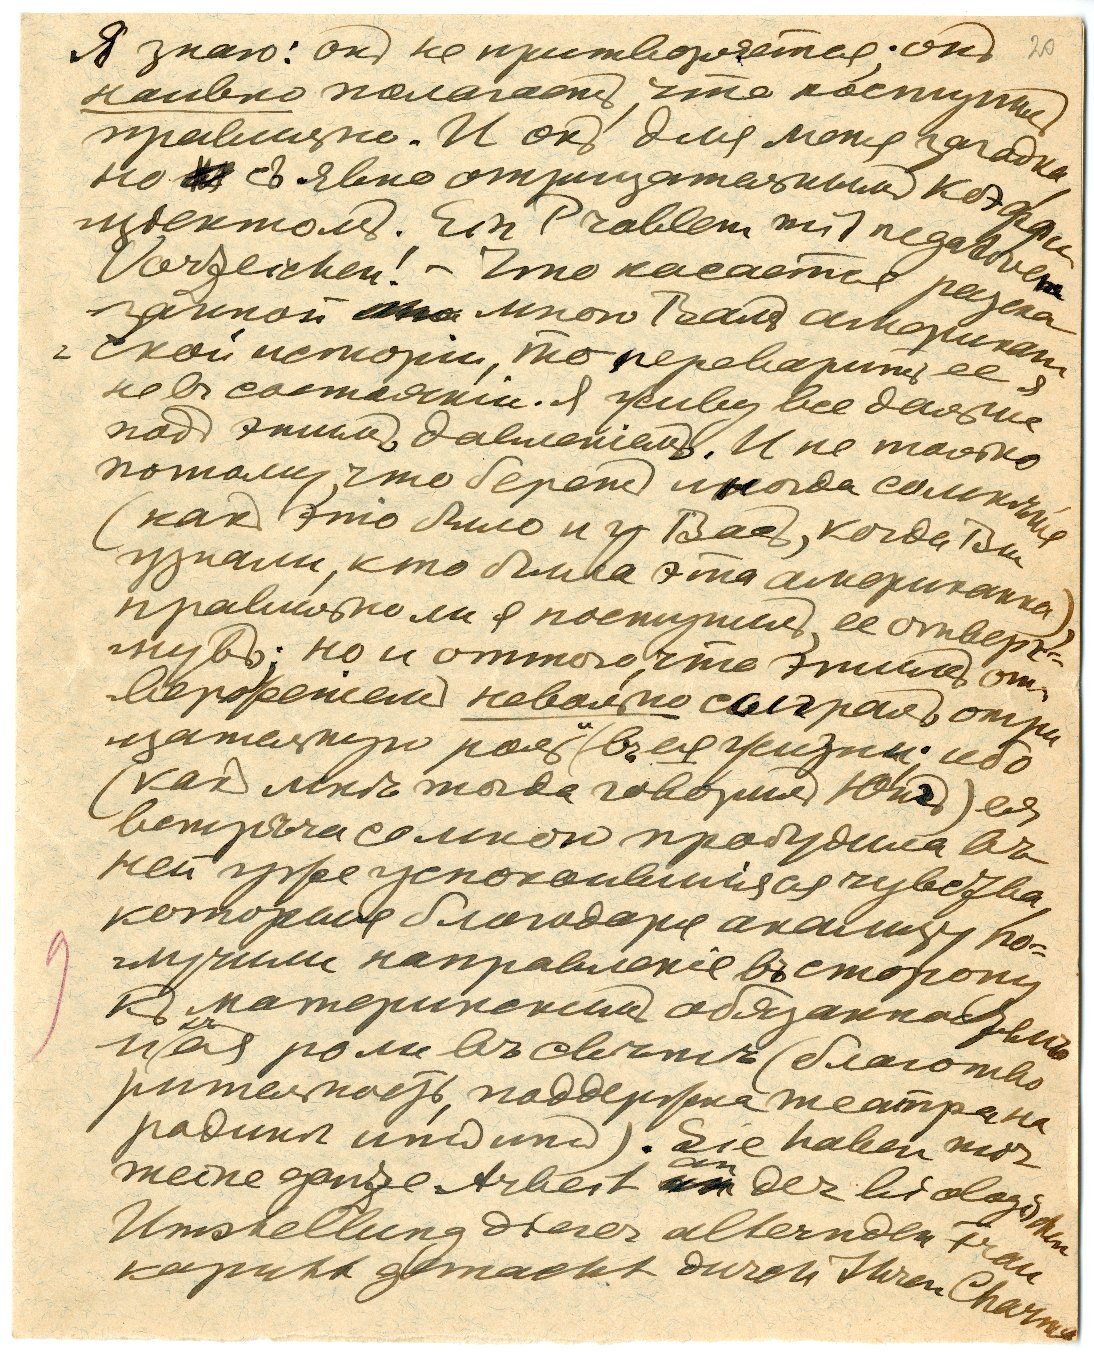 20
Я знаю: онъ не притворяется; онъ
наивно полагаетъ, что поступилъ
правильно. И онъ для меня загадка,
но съ явно отрицательнымъ коэффи
циентомъ. Ein Problem mit negativem
Vorzeichen! – Что касается разска
занной мною Вамъ американ
ской исторіи, то переварить ее я
не въ состояніи. Я живу все дальше
подъ этимъ давленіемъ. И не только
потому, что беретъ иногда сомнѣніе
(какъ это было и у Васъ, когда Вы
узнали, кто была эта американка),
правильно ли я поступилъ, ее отверг-
нувъ; но и оттого, что этимъ от-
верженіемъ невольно сыгралъ отри
цательную роль въ ея жизни; ибо
(какъ мнѣ тогда говорилъ Юнгъ) ея
встрѣча со мною пробудила въ
ней уже успокоившіяся чувства,
которыя благодаря анализу по-
лучили направленіе въ сторону
къ материнскимъ обязанностямъ
и къ ея роли въ свѣтѣ (благотво
рительность, поддержка театра на
родинѣ und und). Sie haben mir
meine ganze Arbeit an der biologischen
Umstellung dieser alternden Frau
kaputt gemacht durch Ihren Charme